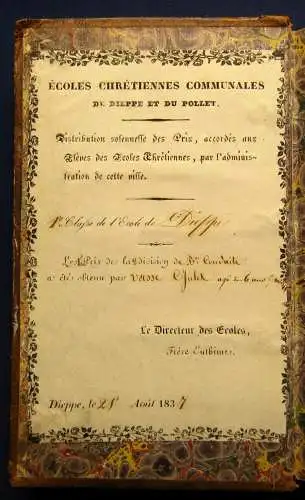 ÉCOLES CHRÉTIENNES COMMUNALES
DE DIEPPE ET DU POLLET.
Distribution solennelle des Prix, accordés aux
Élèves des Écoles Chrétiennes, par l'adminis-
tration de cette ville.
1re Classe de l'École de Dieppe
Le Prix de la division de Bne Conduite
a été obtenu par Vasse Jules agé de 6 ans
Le Directeur des Écoles,
Frère Euthime.
Dieppe, le 21 Août 1837